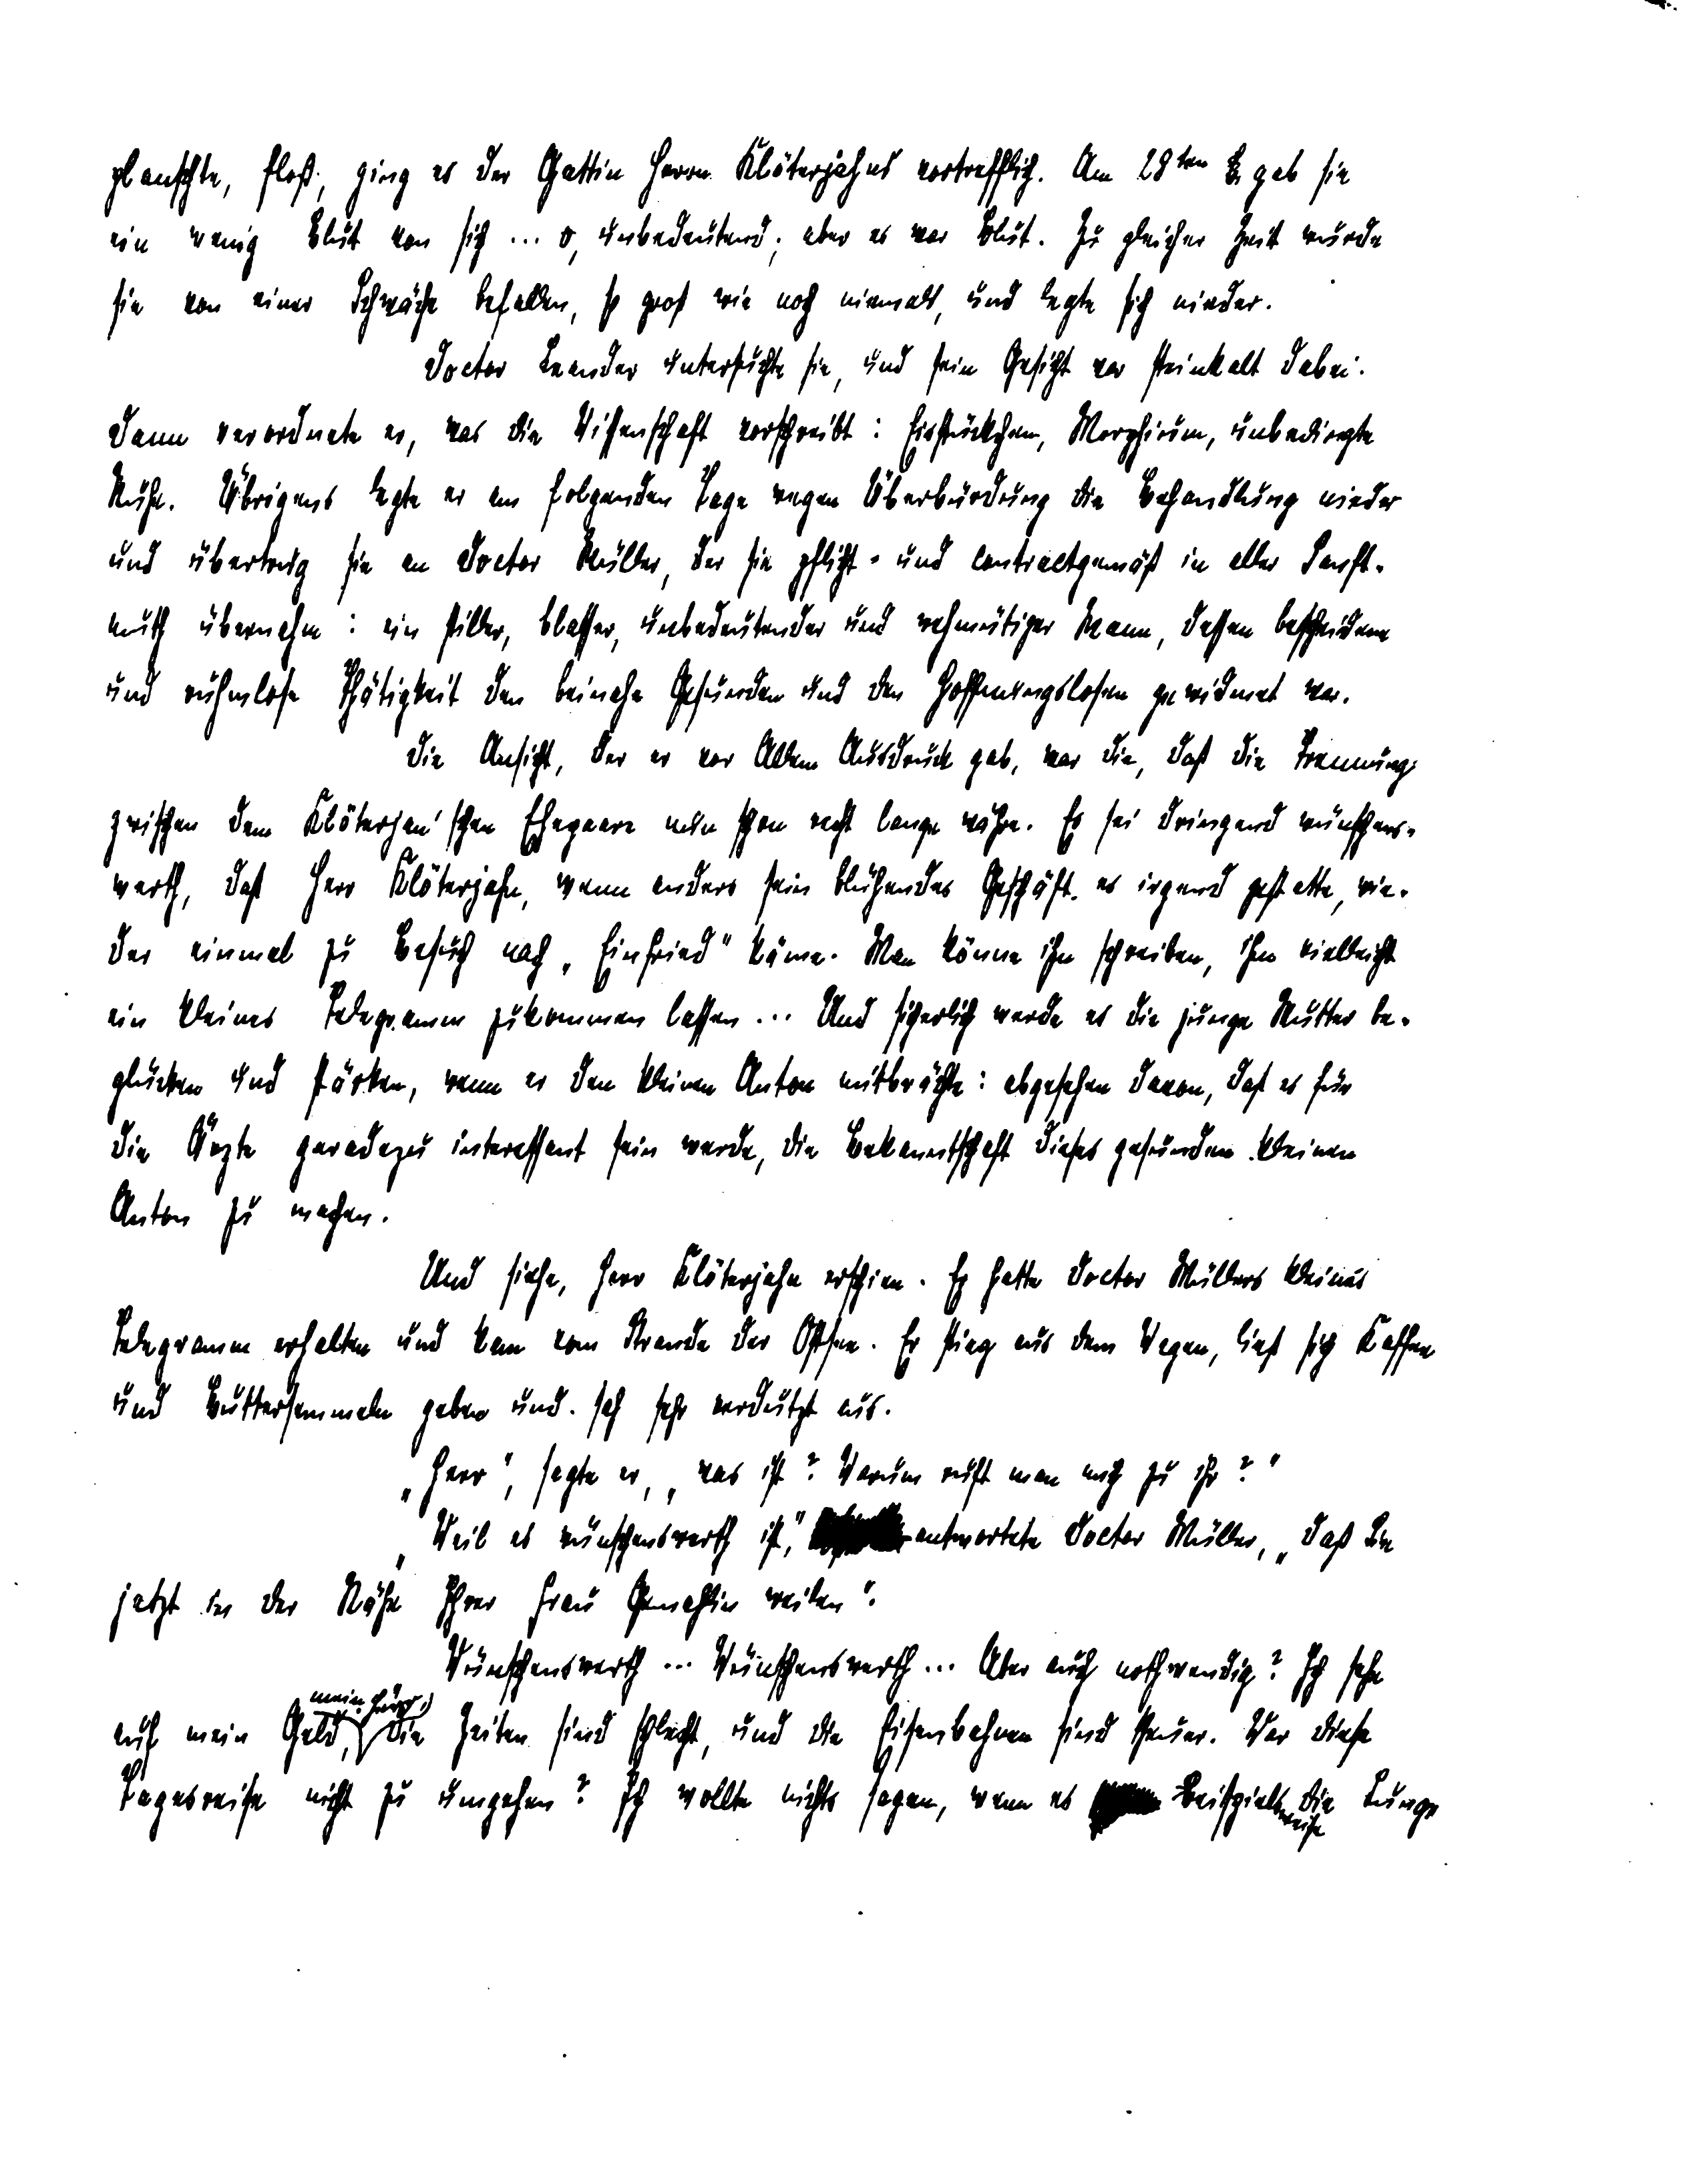 planschte, floß, ging es der Gattin Herrn Klöterjahns vortrefflich. Am 28ten gab sie
ein wenig Blut von sich ... o, unbedeutend; aber es war Blut. Zu gleicher Zeit wurde
sie von einer Schwäche befallen, so groß wie noch niemals, und legte sich nieder.
Doctor Leander untersuchte sie, und sein Gesicht war steinkalt dabei.
Dann verordnete er, was die Wissenschaft vorschreibt: Eisstückchen, Morphium, unbedingte
Ruhe. Übrigens legte er am folgenden Tage wegen Überbürdung die Behandlung nieder
und übertrug sie an Doctor Müller, der sie pflicht- und contractgemäß in aller Sanft-
muth übernahm: ein stiller, blasser, unbedeutender und wehmütiger Mann, dessen bescheidene
und ruhmlose Thätigkeit den beinahe Gesunden und den Hoffnungslosen gewidmet war.
Die Ansicht, der er vor Allem Ausdruck gab, war die, daß die Trennung
zwischen dem Klöterjan'schen Ehepaare nun schon recht lange währe. Es sei dringend wünschens-
werth, daß Herr Klöterjahn, wenn anders sein blühendes Geschäft es irgend gestatte, wie-
der einmal zu Besuch nach „Einfried" käme. Man könne ihm schreiben, ihm vielleicht
ein kleines Telegramm zukommen lassen ... Und sicherlich werde es die junge Mutter be-
glücken und stärken, wenn er den kleinen Anton mitbrächte: abgesehen davon, daß es für
die Ärzte geradezu interessant sein werde, die Bekanntschaft dieses gesunden kleinen
Anton zu machen.
Und siehe, Herr Klöterjahn erschien. Er hatte Doctor Müllers kleines
Telegramm erhalten und kam vom Strande der Ostsee. Er stieg aus dem Wagen, ließ sich Kaffee
und Buttersemmeln geben und sah sehr verdutzt aus.
„Herr", sagte er, „was ist? Warum ruft man mich zu ihr?"
„Weil es wünschenswerth ist," antwortete Doctor Müller, „daß Sie
jetzt in der Nähe Ihrer Frau Gemahlin weilen".
Wünschenswerth ... Wünschenswerth ... Aber auch nothwendig? Ich sehe
auf mein Geld, mein Herr, die Zeiten sind schlecht, und die Eisenbahnen sind theuer. War diese
Tagesreise nicht zu umgehen? Ich wollte nichts sagen, wenn es beispielsweise die Lunge